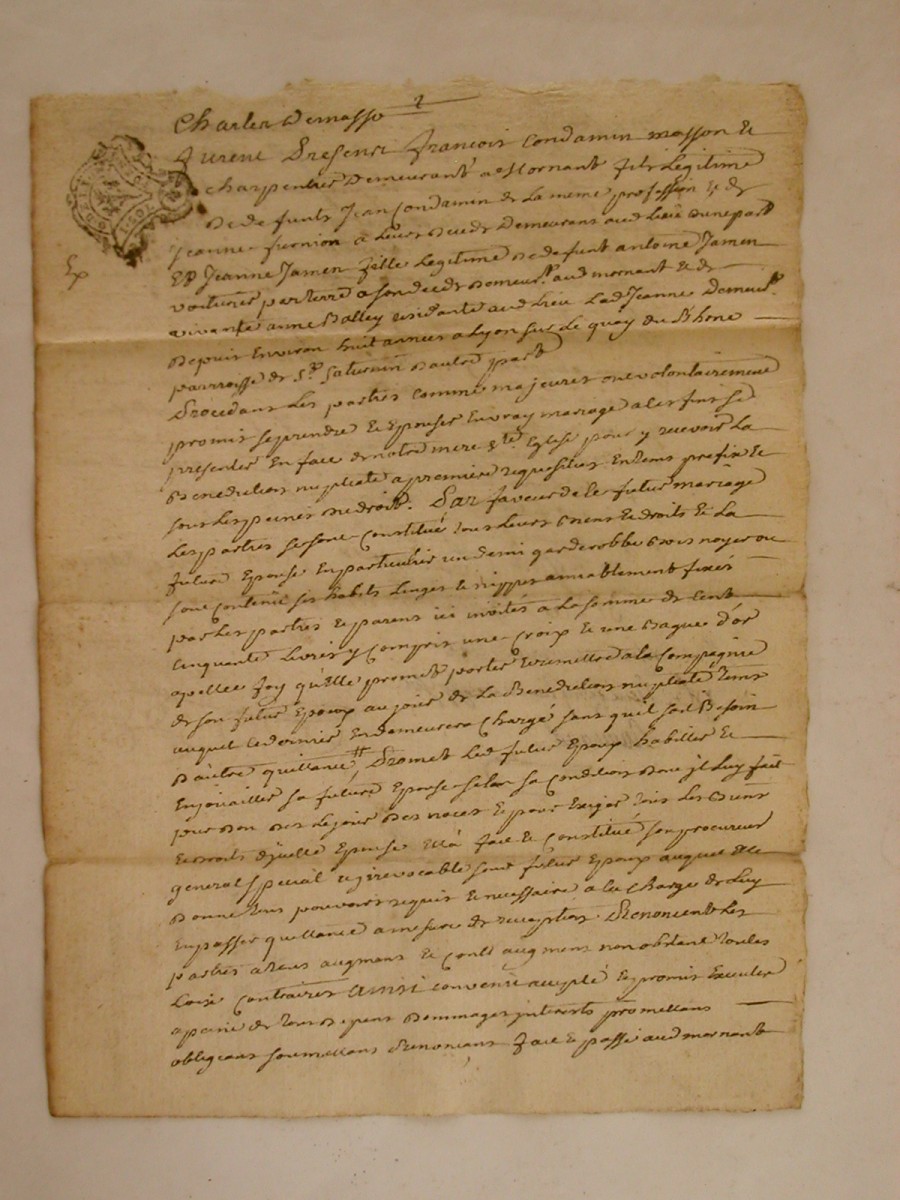 Charles Demasso
Furent Presens francois Condamin masson et
charpentier Demeurant a Mornant fils Legitime
De defunts Jean Condamin de La meme profession et de
Jeanne furnion a Leurs deceds Demeurans aud Lieu d'une part
Ep
Et Jeanne Jamen fille Legitime de defunt antoine Jamen
voiturier par terre a son deceds Demeurt. aud mornant et de
vivante anne Balley residante aud Lieu Lad Jeanne Demeurt.
Depuis Environ huit annees a Lyon sur Le quay du Rhone
parroisse de St. Saturnin D'autre part
Procedans Les parties comme majeures ont volontairement
promis se prendre et Epouser En vray mariage a ces fins se
presenter En face de notre mere Ste Eglise pour y recevoir La
Benediction nuptiale a premiere requisition En tems prefix et
sous Les peines de droit. Par faveur de ce futur mariage
Les parties se sont Constitué tous Leurs biens et droits et La
future Epouse En particulier un demi garderobbe bois noyer ou
sont Contenu ses habits Linges et nippes amiablement fixés
par Les parties et parens ici invités a La somme de Cent
Cinquante Livres y compris une Croix et une Bague d'or
apellée Joy qu'Elle promet porter et remettre a la Compagnie
de son futur Epoux au jour de La Benediction nuptiale tems
auquel ce dernier En demeurera Chargé sans qu'il soit Besoin
D'autre quittance Promet Led futur Epoux habiller et
Enjouailler sa future Epouse selon sa Condition Dont il Luy fait
pur don des Le jour des noces et pour Exiger tous Les Biens
et droits d'ycelle Epouse Ella fait et Constitué son procureur
general special et irrevocable sond futur Epoux auquel Elle
Donne tous pouvoirs requis et necessaire a la Charge de Luy
En passer quittance a mesure de reception Renoncent Les
parties a tous augmens et contr augment nonobstant toutes
Loix Contraires Ainsi convenu accepté et promis Executer
a peine de tous Depens Dommages interets promettans
obligeans soumettans Renoncans fait et passé aud mornant